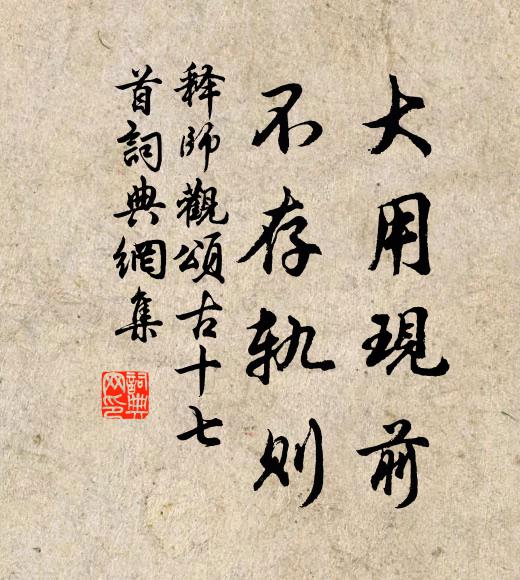 大用現前
不存軌則
释師觀頌古十七
首詞典網集
詞典
网印